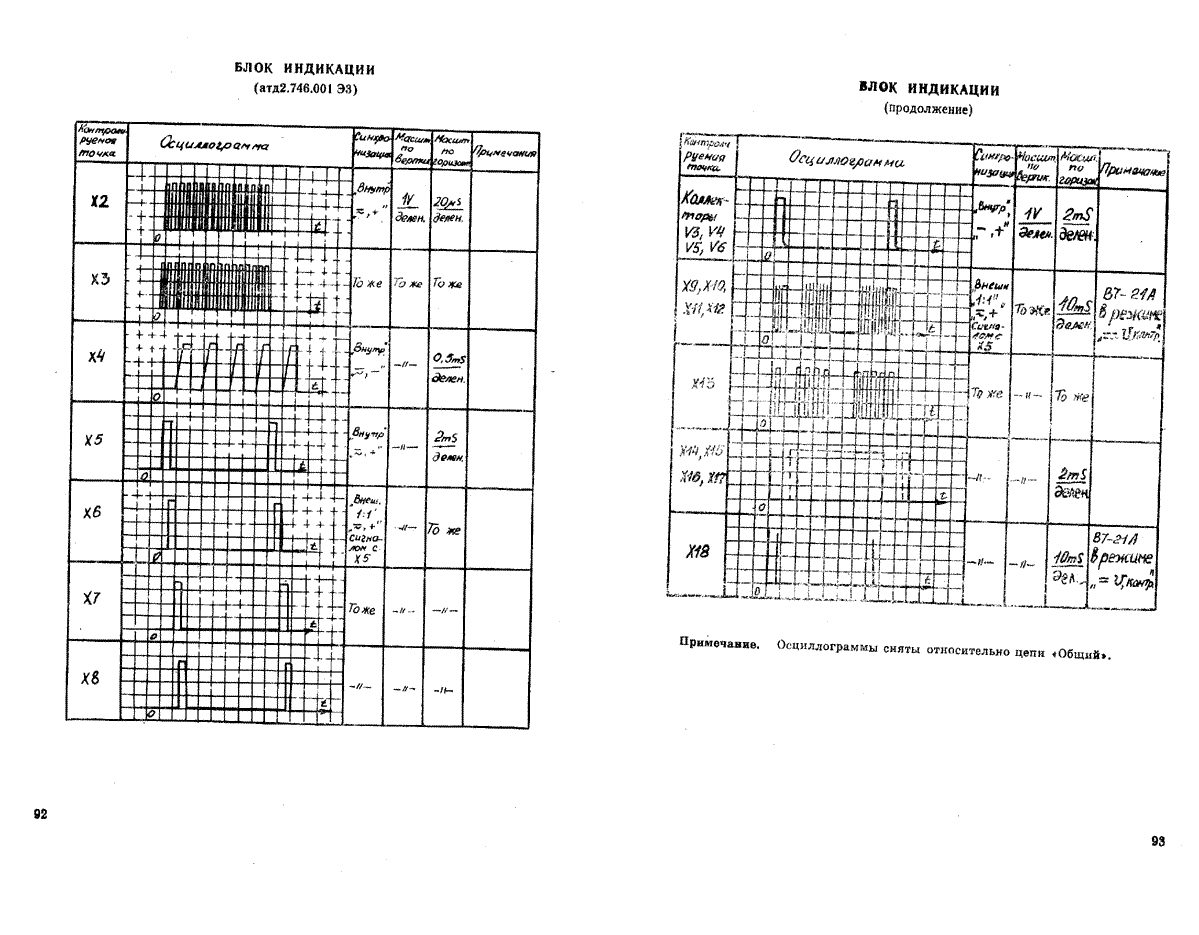 БЛОК ИНДИКАЦИИ
(атд2.746.001 ЭЗ)
Контроли-
руемая
точка
Осциллограмма
Синхро-
низация
Масшт
по
верти
Масшт
по
горизонт
Примечания
Х2
0
t
„Внутр"
„≂, +"
1V
делен.
20µS
делен.
Х3
0
t
То же
То же
То же
Х4
0
t
„Внутр"
„≂, −"
–〃–
0,5mS
делен.
Х5
0
t
„Внутр"
„≂, +"
–〃–
2mS
делен.
Х6
0
t
„Внеш.
1:1"
„≂, +"
сигна-
лом с
Х5
–〃–
То же
Х7
0
t
То же
–〃–
–〃–
Х8
0
t
–〃–
–〃–
–〃–
92
БЛОК ИНДИКАЦИИ
(продолжение)
Контроли
руемая
точка
Осциллограммы
Синхро-
низация
Масшт
по
вертик.
Масшт.
по
горизон
Примечание
Коллек-
торы
V3, V4
V5, V6
0
t
„Внутр",
„−, +"
1V
делен.
2mS
делен.
Х9, Х10,
Х11, Х12
0
t
„Внешн
1:1"
„≂, +
Сигна-
лом с
Х5
То же
10mS
делен.
В7-21А
в режиме
„= U, контр."
Х13
0
t
То же
–〃–
То же
Х14, Х15
Х16, Х17
0
t
–〃–
–〃–
2mS
делен
Х18
0
t
–〃–
–〃–
10mS
дел.
В7-21А
в режиме
„= U, контр."
Примечание. Осциллограммы сняты относительно цепи «Общий».
93